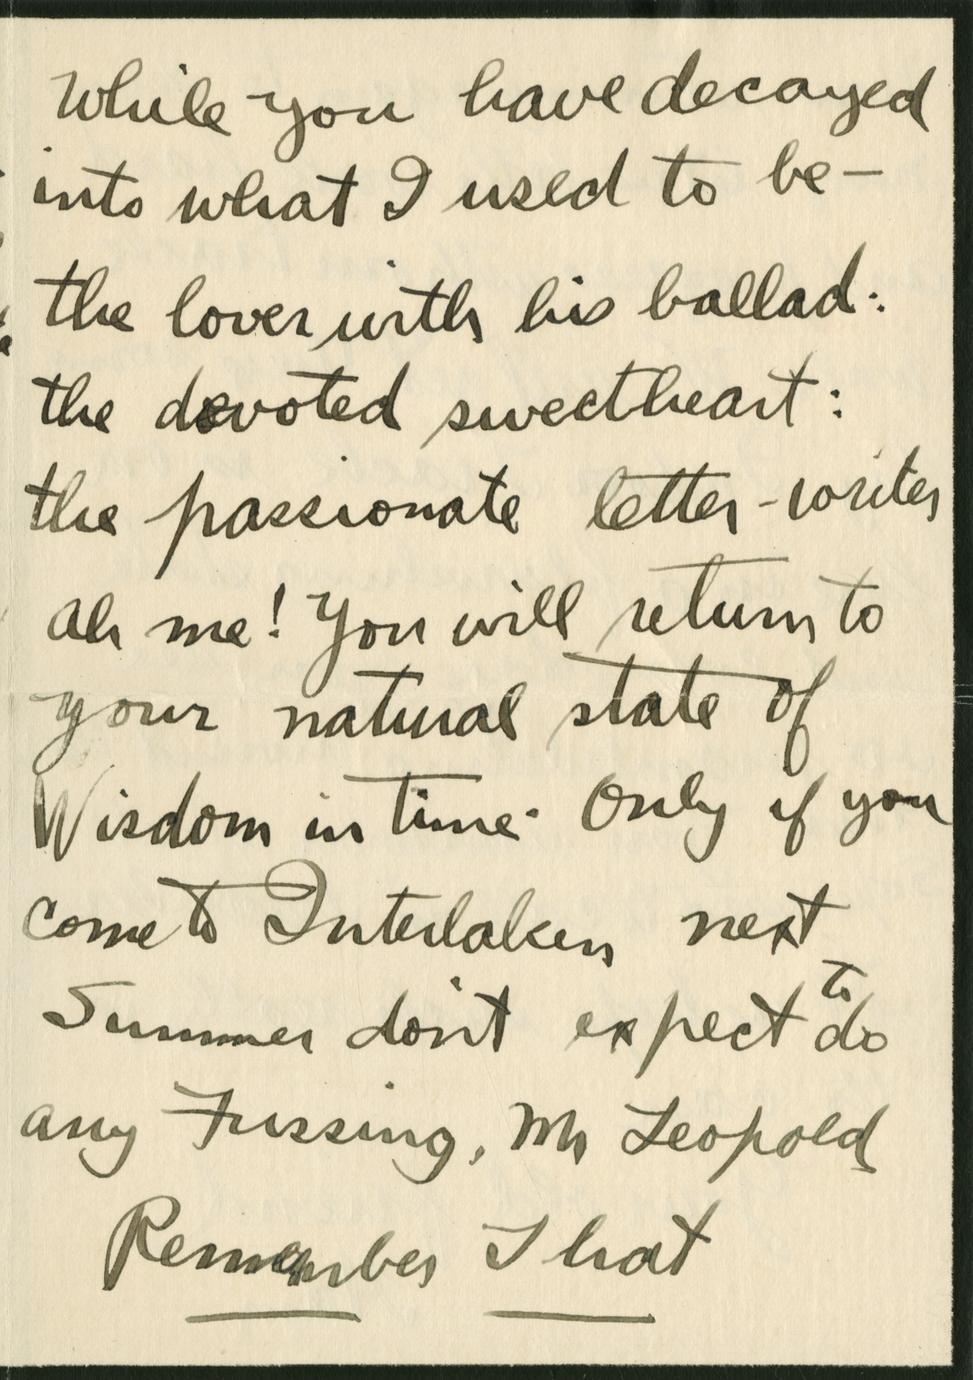 While you have decayed
into what I used to be—
the lover with his ballad:
the devoted sweetheart:
the passionate letter-writer
Ah me! You will return to
your natural state of
Wisdom in time. Only if you
come to Interlaken next
Summer don't expect to do
any Fussing, Mr Leopold
Remember That